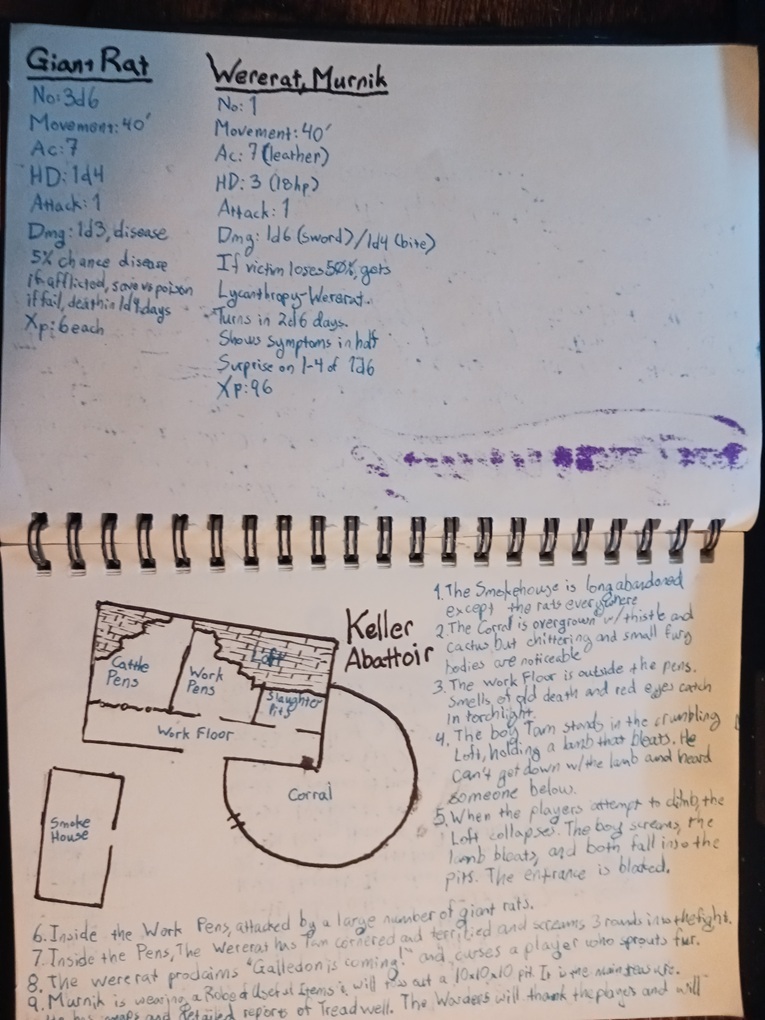 Giant Rat
No: 3d6
Movement: 40'
Ac: 7
HD: 1d4
Attack: 1
Dmg: 1d3, disease
5% chance disease
if afflicted, save vs poison
if fail, death in 1d4 days
Xp: 6 each
Wererat, Murnik
No: 1
Movement: 40'
Ac: 7 (leather)
HD: 3 (18hp)
Attack: 1
Dmg: 1d6 (sword)/1d4 (bite)
If victim loses 50%, gets
Lycanthropy-Wererat.
Turns in 2d6 days.
Shows symptoms in half
Surprise on 1-4 of 1d6
Xp: 96
Keller
Abattoir
Cattle
Pens
Work
Pens
Loft
Slaughter
Pits
Work Floor
Corral
Smoke
House
1. The Smokehouse is long abandoned
except the rats everywhere
2. The Corral is overgrown w/ thistle and
cactus, but chittering and small furry
bodies are noticeable
3. The work Floor is outside the pens.
Smells of old death and red eyes catch
in torchlight.
4. The boy Tam stands in the crumbling
Loft, holding a lamb that bleats. He
can't get down w/the lamb and heard
someone below.
5. When the players attempt to climb, the
Loft collapses. The boy screams, the
lamb bleats, and both fall into the
pits. The entrance is blocked.
6. Inside the Work Pens, attacked by a large number of giant rats.
7. Inside the Pens, The Wererat has Tam cornered and terrified and screams, 3 rounds into the fight.
8. The wererat proclaims "Galledon is coming!" and curses a player who sprouts fur.
9. Murnik is wearing a Robe of Useful Items & will out a 10x10x10 pit. It is the main treasure.
He has maps and detailed reports of Treadwell. The Wardens will thank the players and will